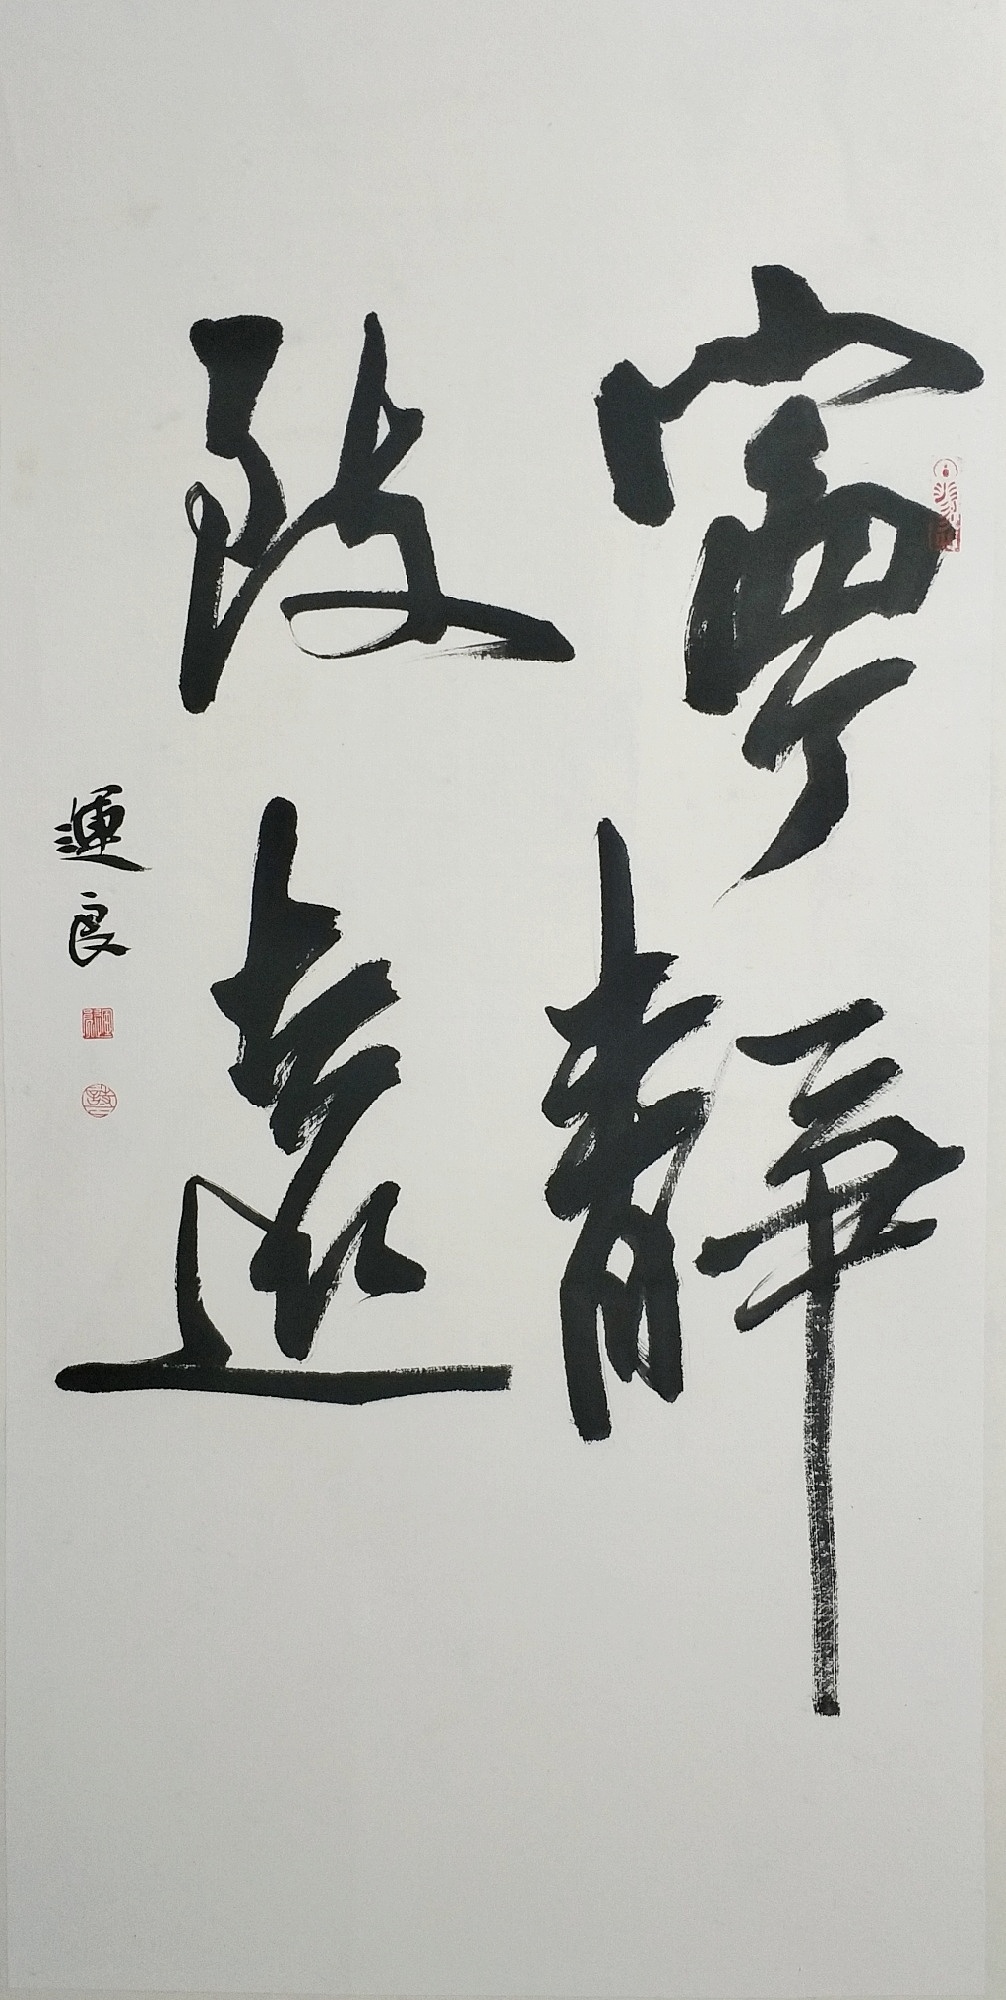 寧靜
致遠
運良